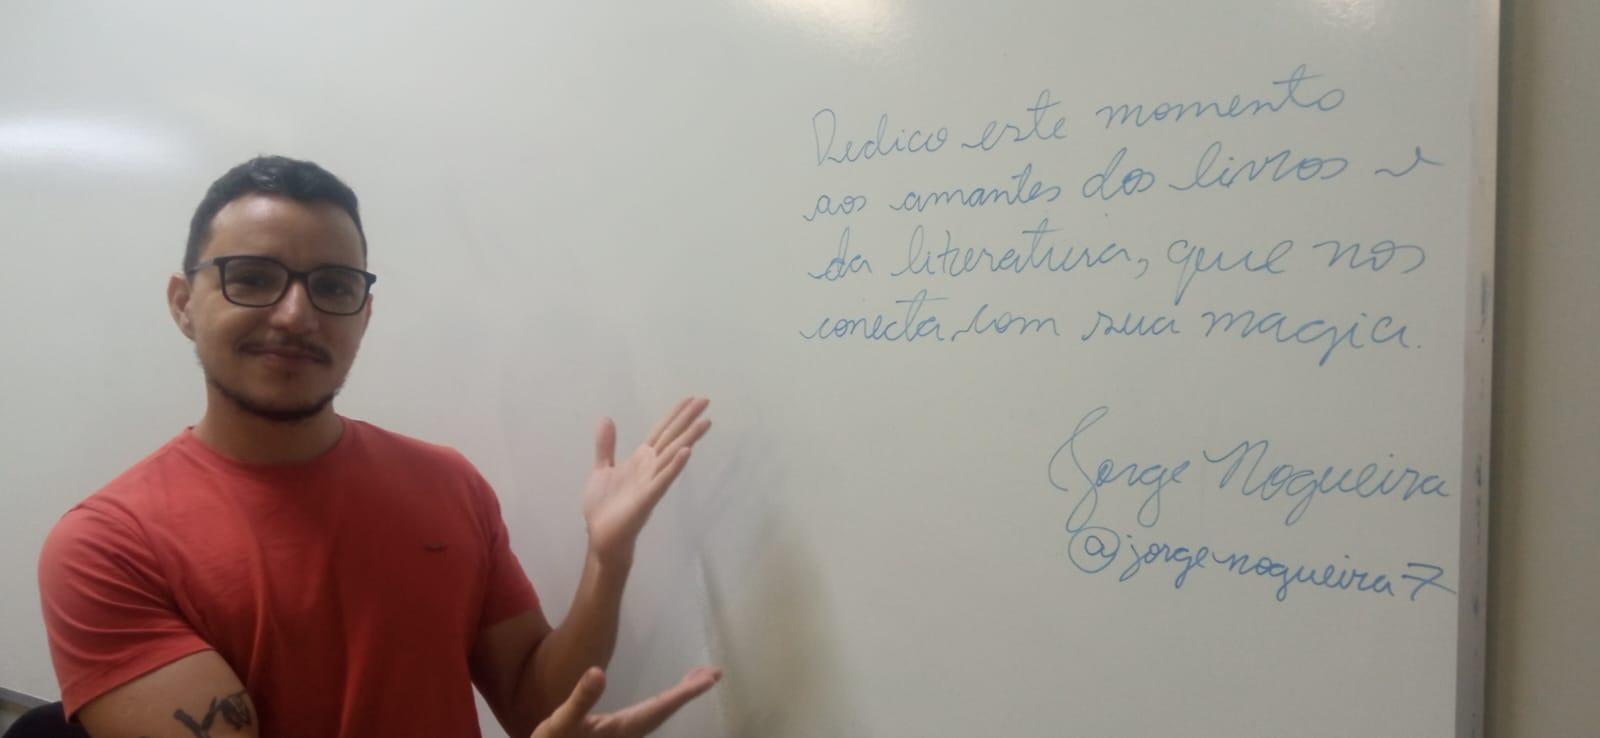 Dedico este momento
aos amantes dos livros e
da literatura, que nos
conecta com sua magia.
Jorge Nogueira
@jorgenogueira7